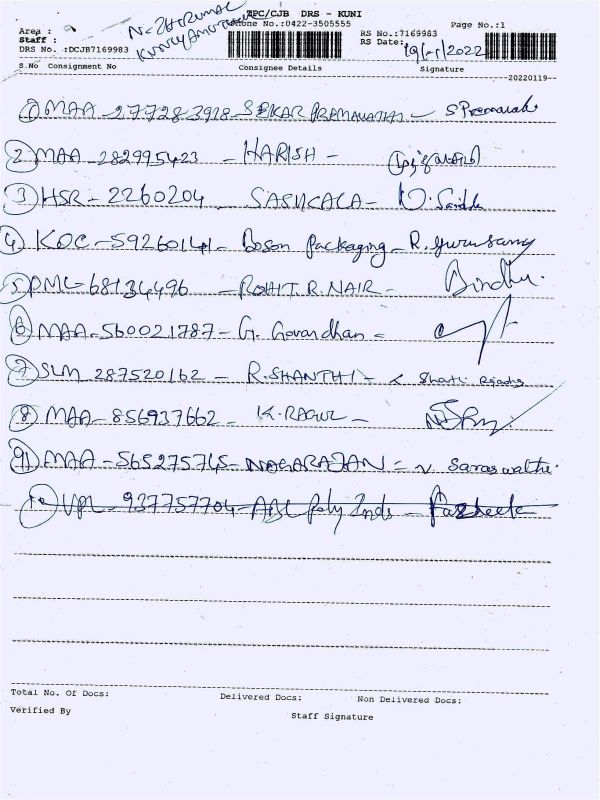 APC/CJB DRS - KUNI
Phone No.:0422-3505555
Page No.:1
Area :
N. THIRUMAL
Staff :
DRS No. :DCJB7169983
RS No.:7169983
RS Date:
19/1/2022
S.No Consignment No Consignee Details Signature
20220119
1 MAA - 277283918 - SEKAR PREMAVATHI - S Premavathi
2 MAA - 282995423 - HARISH -
3 HSR - 2260204 - SASHCALA -
4 KOC - 59260141 - Boson Packaging - R. Gurusamy
5 PML - 68134496 - ROHIT.R.NAIR - Bindhu.
6 MAA - 560021787 - G. Govardhan =
7 SLM 287520162 - R.SHANTHI -
8 MAA - 856937662 - K.RAGUL -
9 MAA - 565275745 - NAGARAJAN = N. Saraswathi.
10 UPL - 937757704 - ABC Poly Inds -
Total No. Of Docs: Delivered Docs: Non Delivered Docs:
Verified By
Staff Signature